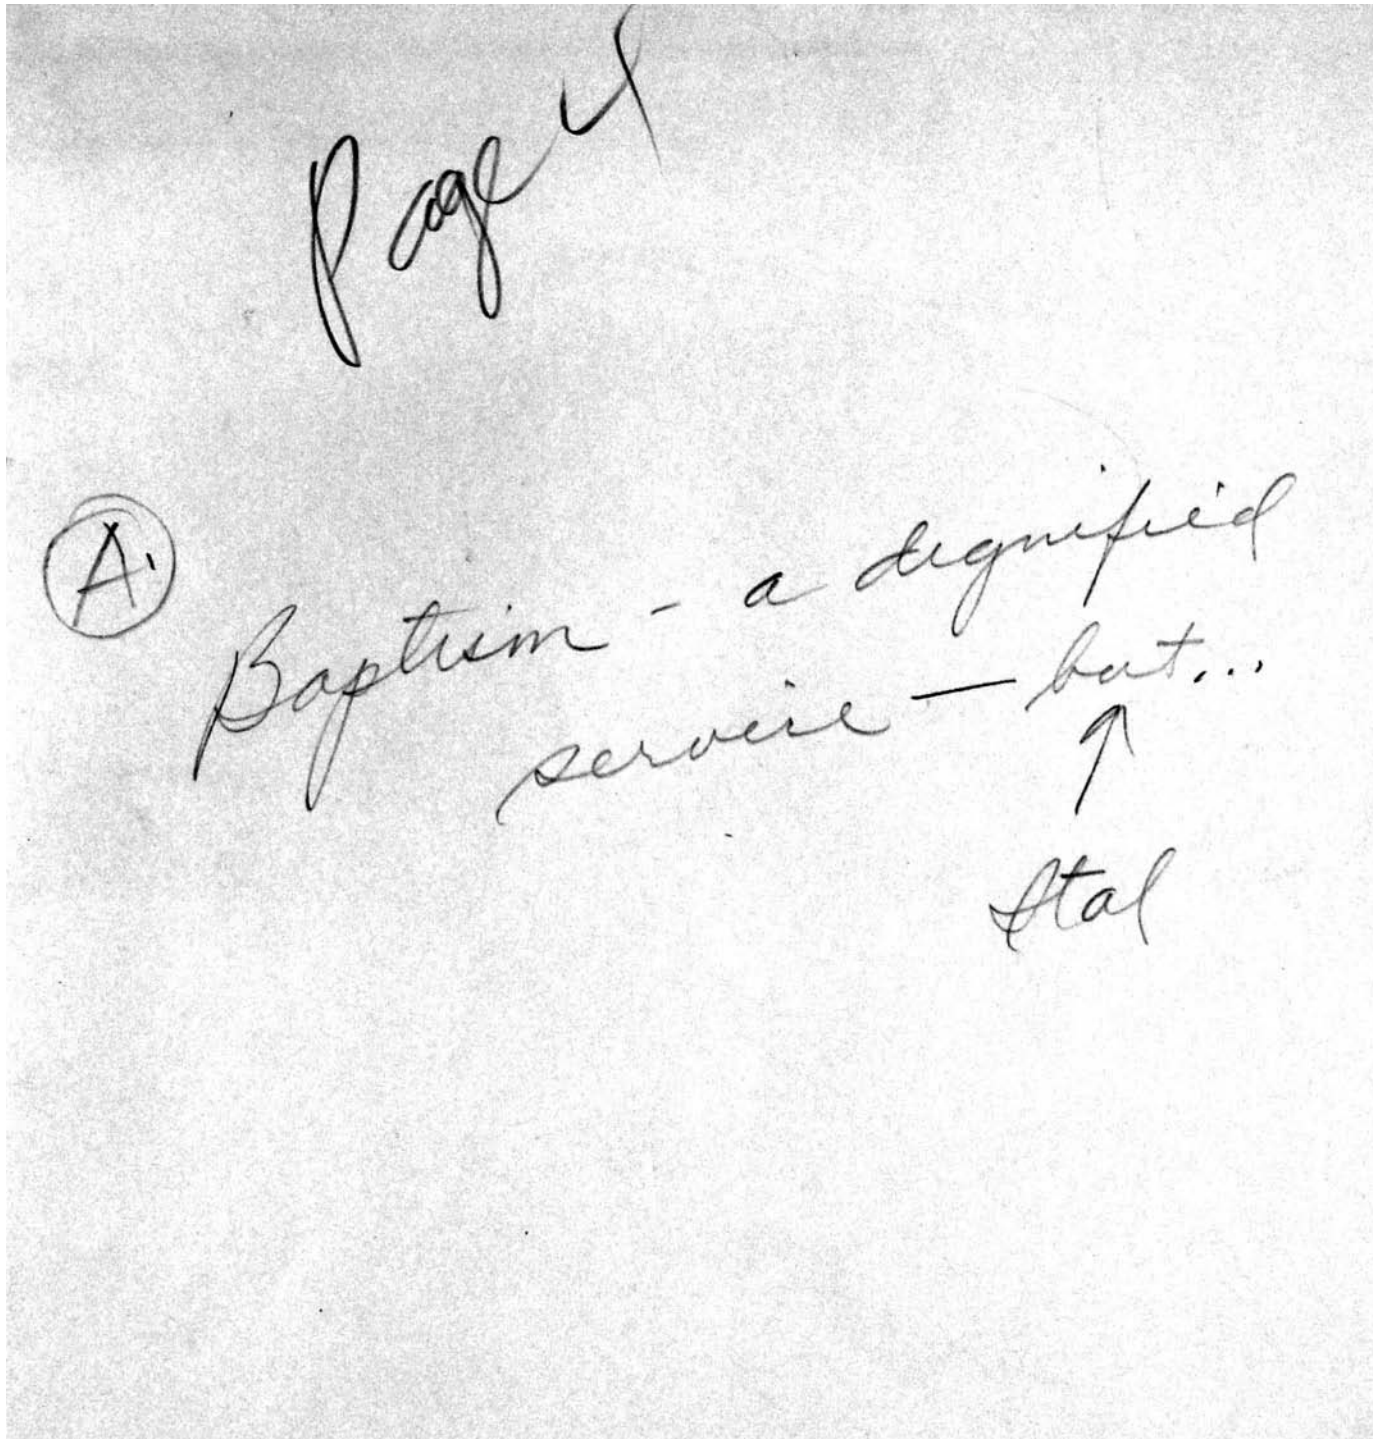 Page 4
A.
Baptism - a dignified
service — but...
↑
Ital